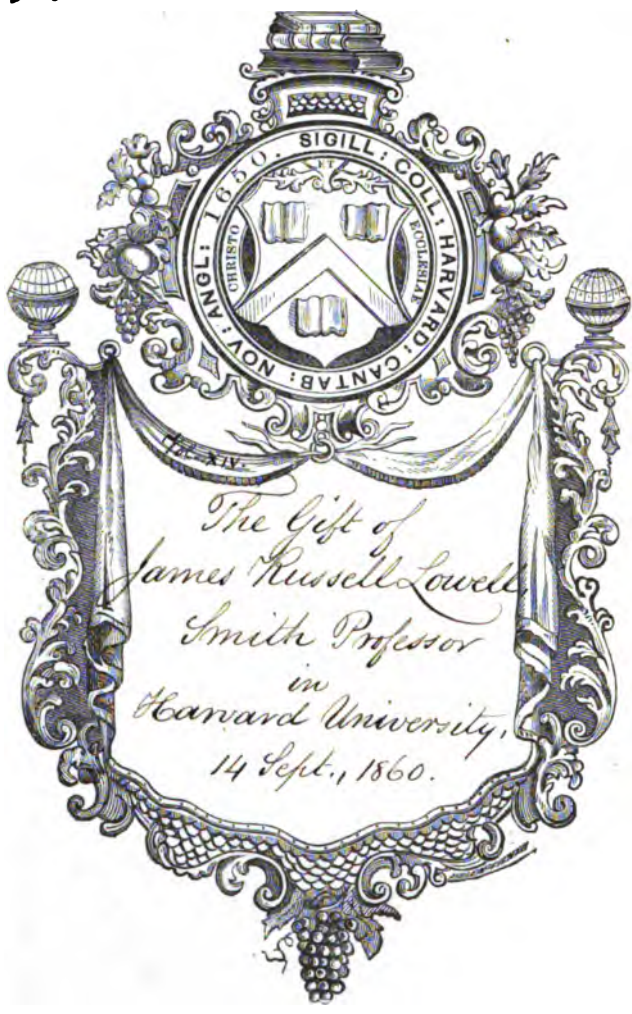 SIGILL: COLL: HARVARD: CANTAB: NOV: ANGL: 1650.
ET
CHRISTO
ECCLESIAE
XIV.
The Gift of
James Russell Lowell,
Smith Professor
in
Harvard University,
14 Sept., 1860.